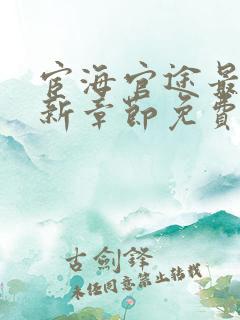 宦海官途最
新章节免费
古剑锋
未经同意禁止转载